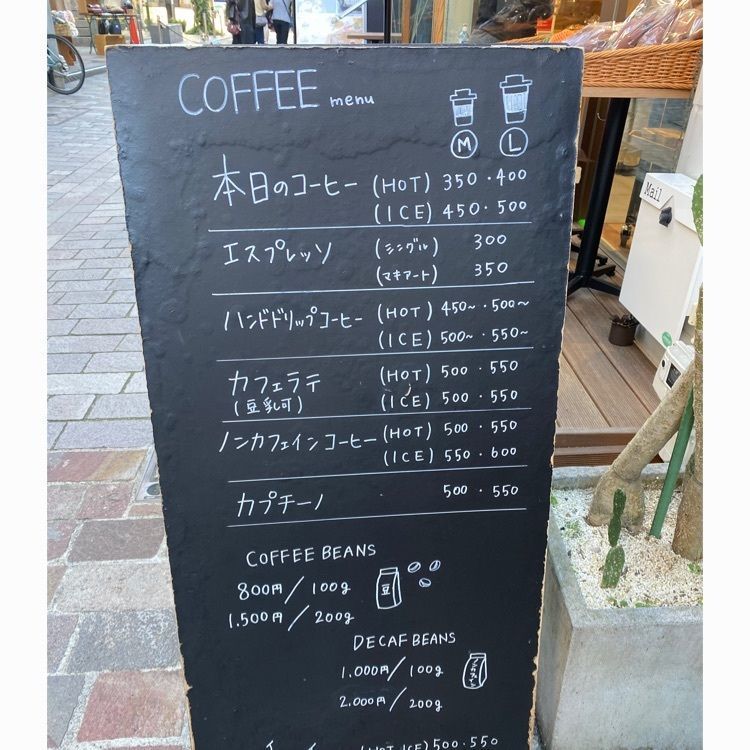 COFFEE menu
M L
本日のコーヒー (HOT) 350・400
(ICE) 450・500
エスプレッソ (シングル) 300
(マキアート) 350
ハンドドリップコーヒー (HOT) 450~・500~
(ICE) 500~・550~
カフェラテ (HOT) 500・550
(豆乳可) (ICE) 500・550
ノンカフェインコーヒー (HOT) 500・550
(ICE) 550・600
カプチーノ 500・550
COFFEE BEANS
800円/100g 豆
1.500円/200g
DECAF BEANS
1.000円/100g ノンカフェイン
2.000円/200g
(HOT ICE) 500・550
Mail